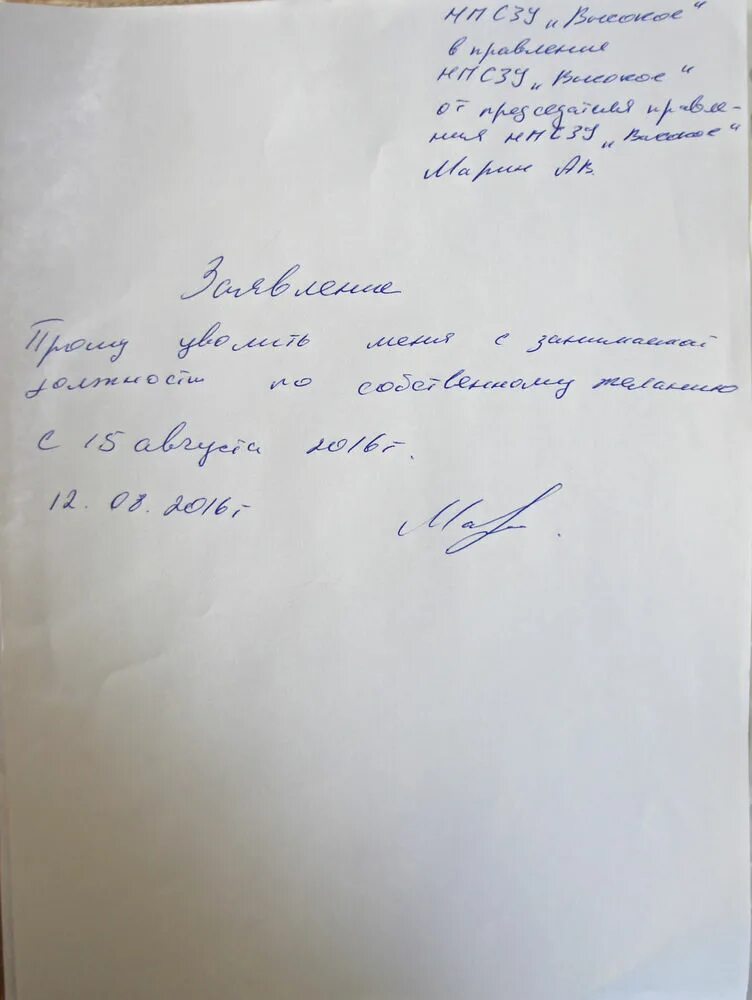 НПСЗУ „Высокое“
в правление
НПСЗУ „Высокое“
от председателя правле-
ния НПСЗУ „Высокое“
Марин А.В.
Заявление
Прошу уволить меня с занимаемой
должности по собственному желанию
с 15 августа 2016 г.
12.08.2016 г